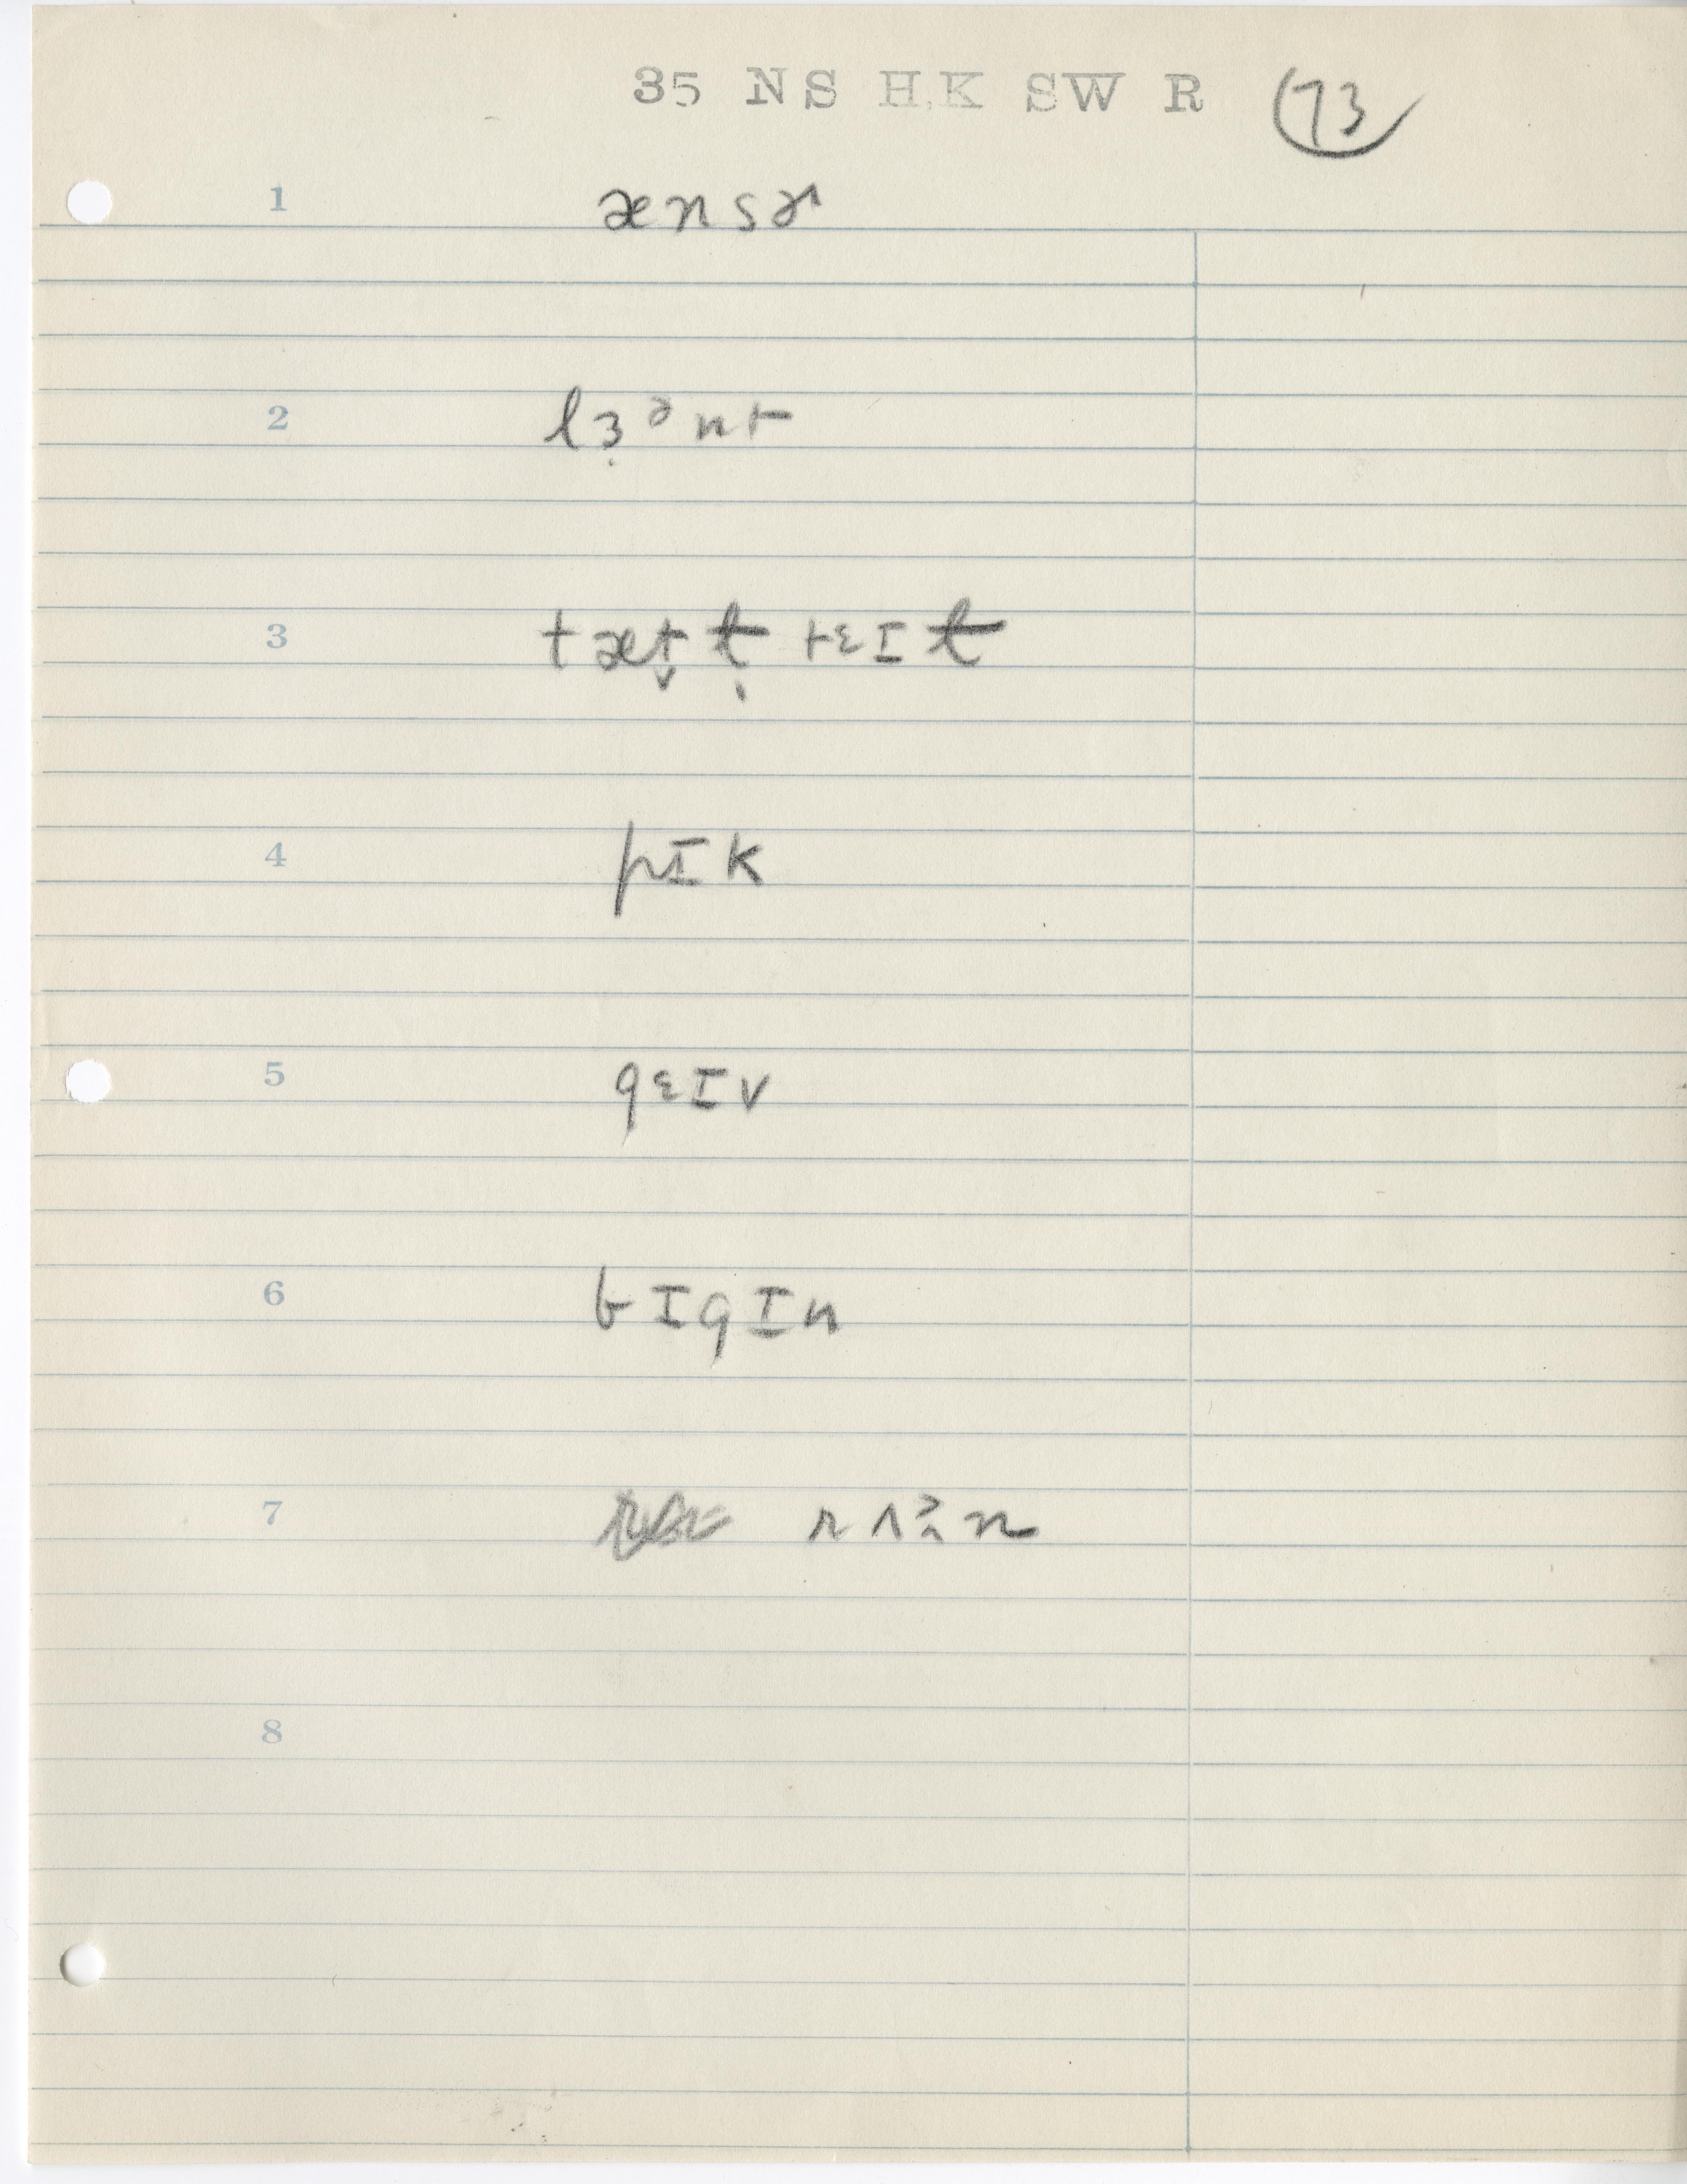 35 NS H.K SW R 73
1 ænsɚ
2 lɜ̣ᵊnt
3 tæt̬ ṭ tɛɪt
4 pɪk
5 gɛɪv
6 bɪgɪn
7 rʌɜ̯n
8